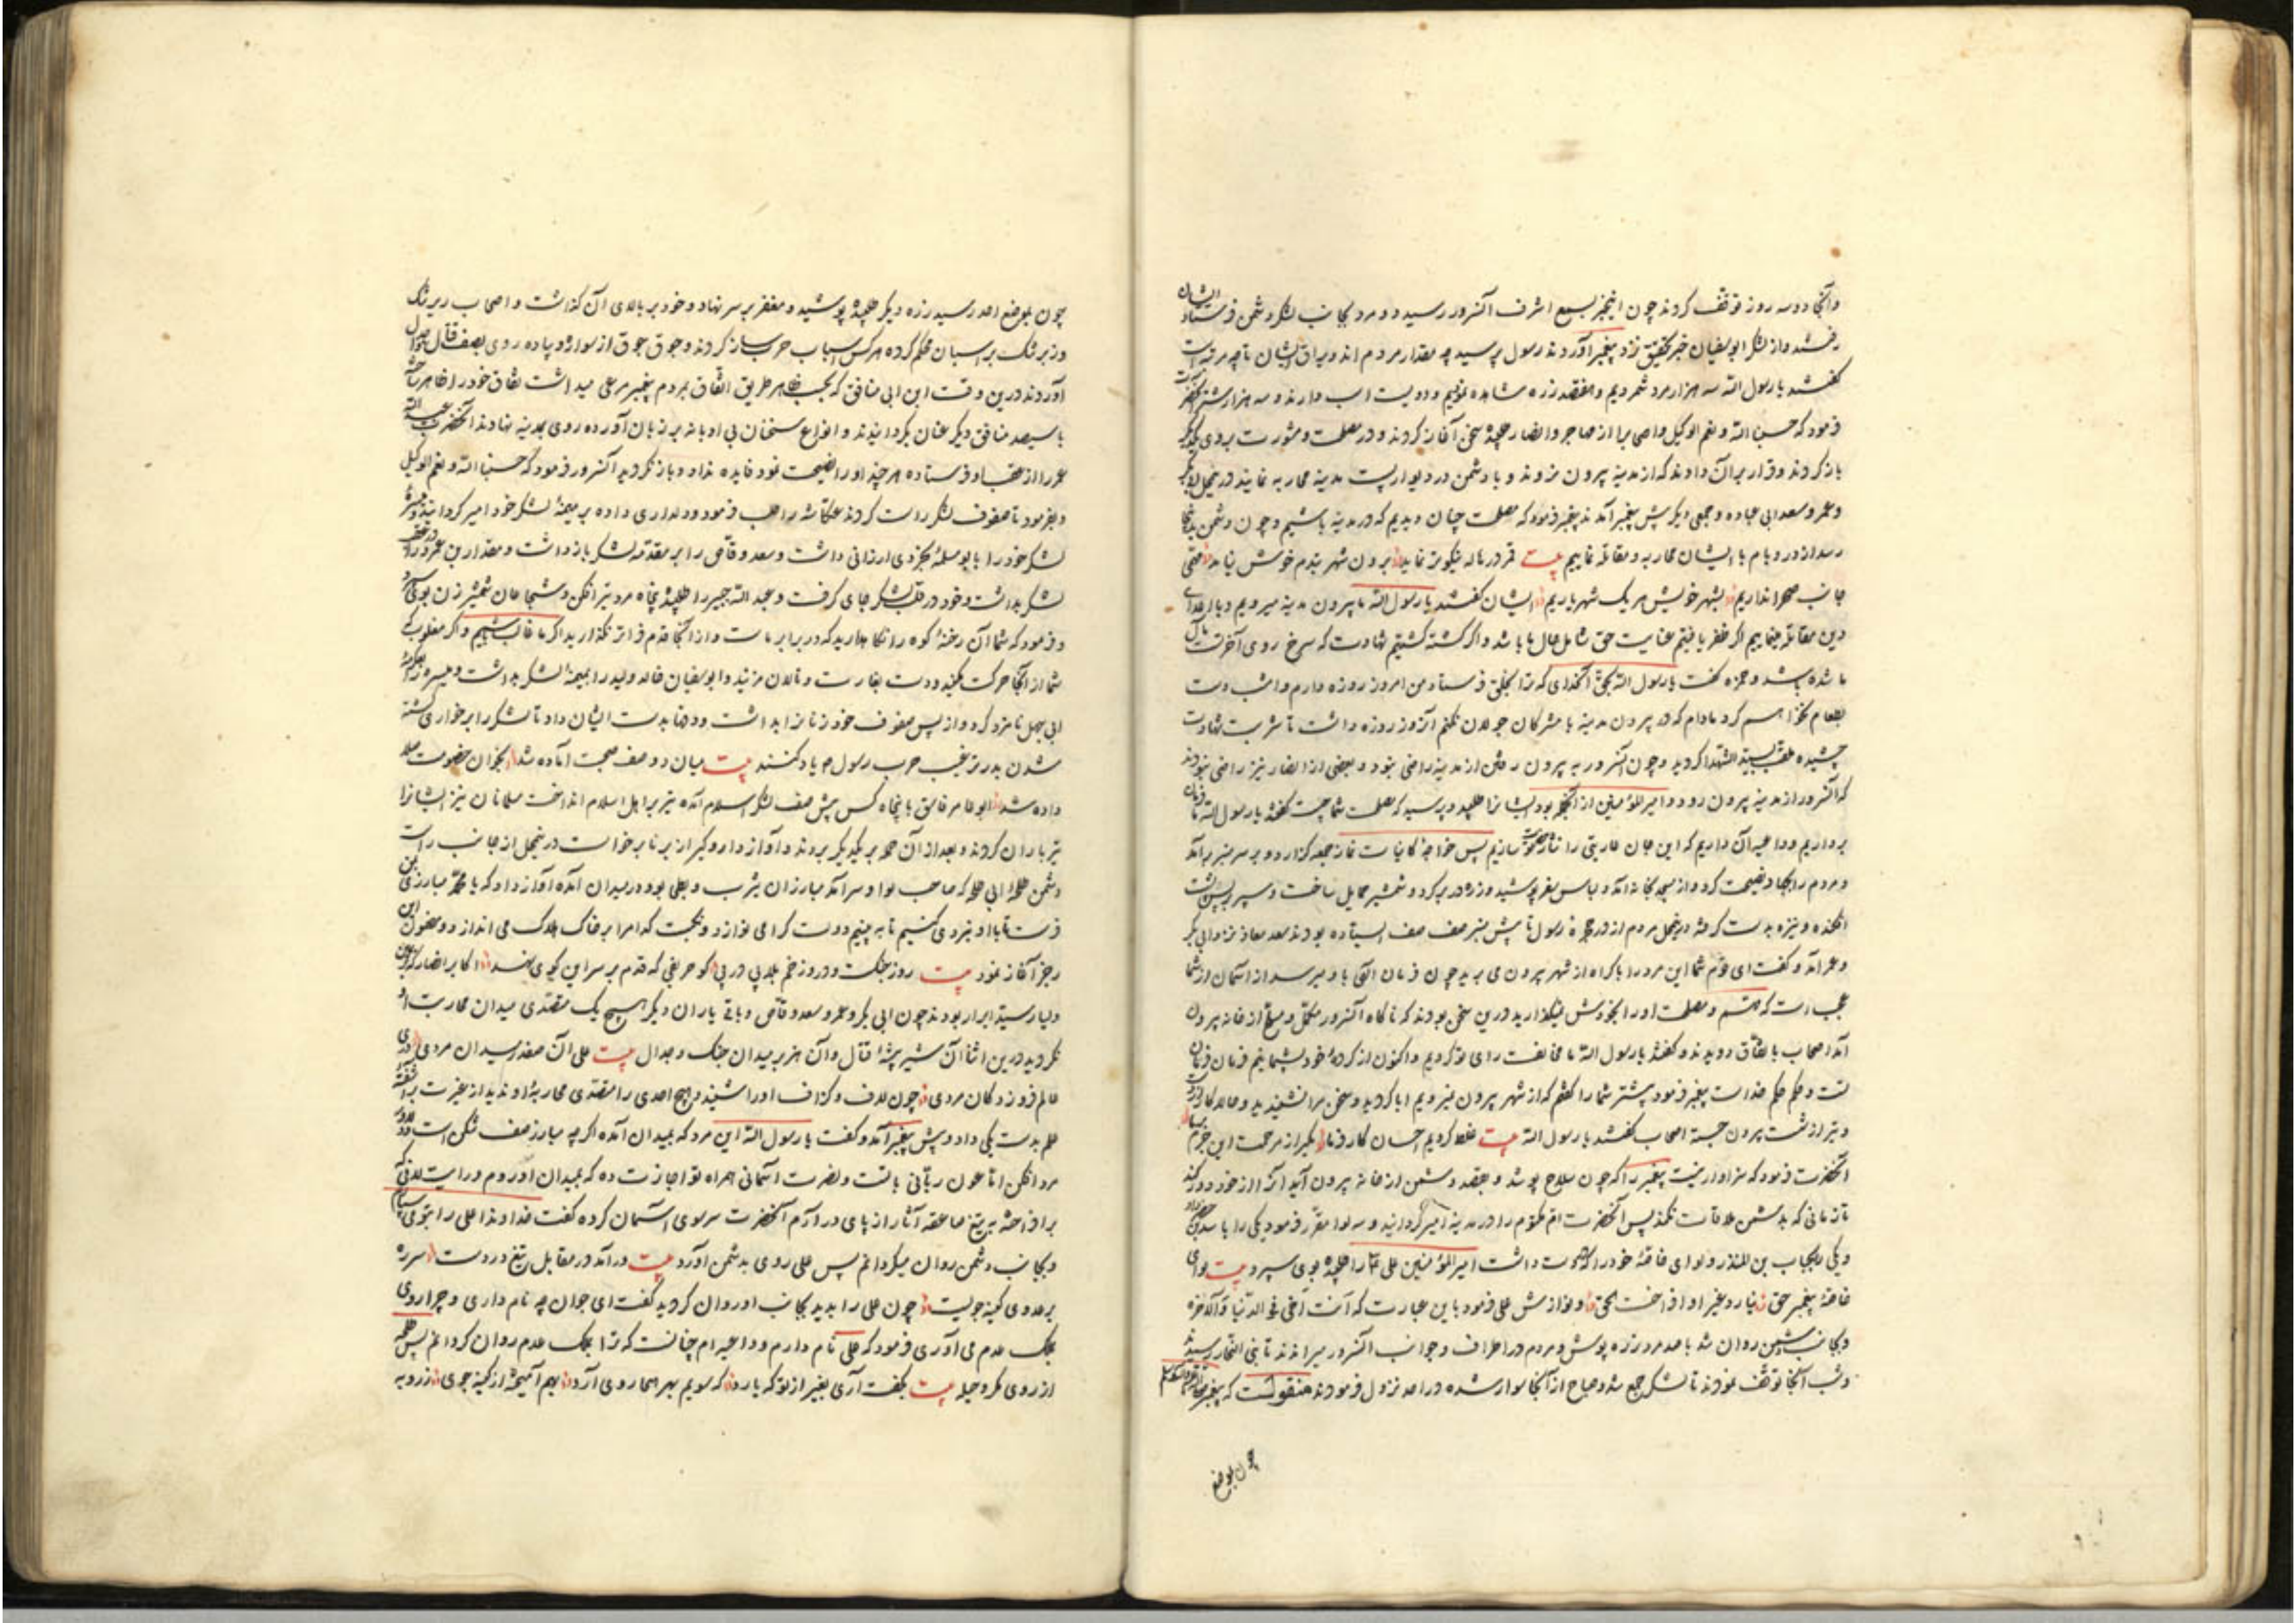 وآنجا دو سه روز توقف کردند چون اینخبر بسمع اشرف آنسرور رسید دو مرد بجانب لشکر دشمن فرستاد ایشان
رفتند و از لشکر ابوسفیان خبر تحقیق نزد پیغمبر آوردند رسول پرسید چه مقدار مردم اند ویراق ایشان تا چه مرتبه است
گفتند یا رسول الله سه هزار مرد شمردیم و هفتصد زره مشاهده نمودیم و دویست اسب دارند و سه هزار شتر آنحضرت
فرمود که حسبنا الله ونعم الوکیل واصحابرا از مهاجر وانصار طلبیده سخن آغاز کردند و در مصلحت ومشورت بروی یکدیگر
باز کردند وقرار بر آن دادند که از مدینه بیرون نروند و با دشمن در دیوار بست مدینه محاربه نمایند درینمحل ابوبکر
وعمر وسعد ابی عباده وجمعی دیگر پیش پیغمبر آمدند پیغمبر فرمود که مصلحت چنان دیدیم که در مدینه باشیم وچون دشمن بدینجا
رسد از در و بام با ایشان محاربه ومقاتله نماییم بیت قمر در هاله نیکوتر نماید برون شهر بندم خوش نیاید متقی
جانب صحرا نداریم بشهر خویش هر یک شهریاریم ایشان گفتند یا رسول الله ما بیرون مدینه میرویم وبا اعدای
دین مقاتله مینماییم اگر ظفر یافتیم عنایت حق شامل حال ما باشد واگر کشته گشتیم شهادت که سرخ روی آخرتست مآل
ما شده باشد وحمزه گفت یا رسول الله بحق آنخدای که ترا بخلق فرستاد من امروز روزه دارم وامشب دست
بطعام نخواهم کرد مادام که در بیرون مدینه با مشرکان جولان نکنم آنروز روزه داشت تا شربت شهادت
چشیده ملقب بسید الشهدا گردید وچون آنسرور به بیرون رفتن از مدینه راضی نبود وبعضی از انصار نیز راضی نبودند
که آنسرور از مدینه بیرون رود و امیرالمؤمنین از آنجمله بود ایشانرا طلبید وپرسید که مصلحت شما چیست گفتند یا رسول الله ما فرمان
برداریم وداعیه آن داریم که این جان عاریتی را نثار تو سازیم پس خواجه کاینات نماز جمعه گزارد و بر سر منبر برآمد
ومردم را بجهاد نصیحت کرد و از مسجد بخانه آمد ولباس سفر پوشید وزره در بر کرد وشمشیر حمایل ساخت وسپر بر پس پشت
افکنده ونیزه بدست گرفته درینمحل مردم از در حجره رسول تا پیش منبر صف صف ایستاده بودند سعد معاذ نزد ابی بکر
وعمر آمد وگفت ای قوم شما این مرد را باکراه از شهر بیرون می برید چون فرمان الهی باو میرسد از آسمان از شما
عجب است که مهم ومصلحت او را بخودش نمیگذارید درین سخن بودند که ناگاه آنسرور مکمل ومسلح از خانه بیرون
آمد اصحاب باتفاق دویدند وگفتند یا رسول الله ما مخالفت رای تو کردیم واکنون از کرده خود پشیمانیم فرمان فرمان
تست وحکم حکم خداست پیغمبر فرمود پیشتر شما را گفتم که از شهر بیرون نمیرویم ابا کردید وسخن مرا نشنیدید وحالا کار از دست
وتیر از شست بیرون جسته اصحاب گفتند یا رسول الله بیت غلط کردیم احسان کار فرما بگیر از مرحمت این جرم بر ما
آنحضرت فرمود که سزاوار نیست پیغمبر را که چون سلاح پوشد وبقصد دشمن از خانه بیرون آید آنرا از خود دور کند
تا زمانی که بدشمن ملاقات نکند پس آنحضرت ام مکتوم را در مدینه امیر گردانید وسه لوا مقرر فرمود یکی را باسید
ویکی بحباب بن المنذر ولوای خاصه خود را که داشت امیرالمؤمنین علی را طلبیده بوی سپرد بیت لوای
خاصه پیغمبر حق نیارد غیر او افراخت الحق ونوازش علی فرمود باین عبارت که انت اخی فی الدنیا والآخره
وبجانب دشمن روان شد با صد مرد زره پوش ومردم در اطراف وجوانب آنسرور میراندند تا بنی النجار رسیدند
وشب آنجا توقف نمودند تا لشکر جمع شد وصباح از آنجا سوار شده در احد نزول فرمودند منقولست که پیغمبر
چون بموضع
چون بموضع احد رسید زره دیگر طلبیده پوشید ومغفر بر سر نهاد وخود بر بالای آن گذاشت واصحاب زیر تنگ
وزبر تنگ بر اسبان محکم کرده هر کس اسباب حرب ساز کردند وجوق جوق از سواره وپیاده روی بصف قتال وجدال
آوردند درین وقت ابن ابی منافق که بحسب ظاهر طریق اتفاق بمردم پیغمبر مرعی میداشت نفاق خود را ظاهر ساخته
با سیصد منافق دیگر عنان بگردانیدند وانواع سخنان بی ادبانه بر زبان آورده روی بمدینه نهادند آنحضرت عبدالله
عمر را از عقب او فرستاده هر چند او را نصیحت نمود فایده نداد وباز نگردید آنسرور فرمود که حسبنا الله ونعم الوکیل
وبفرمود تا صفوف لشکر راست کردند عکاشه را طلب فرمود ودلداری داده بر میمنه لشکر خود امیر گردانید ومیسره
لشکر خود را بابو سلمه مخزومی ارزانی داشت وسعد وقاص را بر مقدمه لشکر باز داشت ومقدار بن عمرو را در عقب
لشکر بداشت وخود در قلب لشکر جای گرفت وعبدالله جبیر را طلبیده پنجاه مرد تیرافکن وشجاعان شمشیر زن بوی سپرد
وفرمود که شما آن رخنه کوه را نگاه دارید که در برابر ماست واز آنجا قدم فراتر نگذارید اگر ما غالب شویم واگر مغلوب که
شما از آنجا حرکت مکنید ودست بغارت وتالان مزنید وابوسفیان خالد ولید را بمیمنه لشکر بداشت ومیسره را بعکرمه
ابی جهل نامزد کرد واز پس صفوف خود زنانرا بداشت ودفها بدست ایشان داد تا لشکر را بر خواری کشته
شدن بدر ترغیب حرب رسول م یاد کنند بیت میان دو صف صحبت آماده شد بگردان خصومت صلا
داده شد ابوعامر فاسق با پنجاه کس پیش صف لشکر اسلام آمده تیر بر اهل اسلام انداخت مسلمانان نیز ایشانرا
تیرباران کردند وبعد از آن حمله بر یکدیگر بردند وآواز دار وگیر از برنا برخاست درینمحل از جانب راست
دشمن طلحه ابی طلحه که صاحب لوا وسرآمد مبارزان یثرب وبطحی بود در میدان آمده آواز داد که یا محمد مبارزی بمن
فرست تا با او نبردی کنیم تا به بینیم دولت کرا می نوازد ونکبت کدام را بر خاک هلاک می اندازد ومضمون این
رجز آغاز نمود بیت روز جنگ ودرو زخم بلا پی در پی کو حریفی که قدم بر سر این کوی نهد اکابر انصار که
ولیا وسید ابرار بودند چون ابی بکر وعمر وسعد وقاص وباقی یاران دیگر هیچ یک متصدی میدان محاربت او
نگردید درین اثنا آن شیر بیشه قتال وآن هزبر میدان جنگ وجدال بیت علی آن صفدر میدان مردی
عالم فروز دکان مردی چون لاف وگزاف او را شنید وهیچ احدی را متصدی محاربه او ندید از غیرت برآشفته
علم بدست یکی داد وپیش پیغمبر آمد وگفت یا رسول الله این مرد که بمیدان آمده اگر چه مبارز صف شکن است ودلاور
مرد افکن اما عون ربانی با تست ونصرت آسمانی همراه تو اجازت ده که بمیدان او روم ورایت لافتی
برافراخته به تیغ صاعقه آثار از پای درآرم آنحضرت سر سوی آسمان کرده گفت خداوندا علی را بتو می سپارم
وبجانب دشمن روان میگردانم پس علی روی بدشمن آورد بیت درآمد در مقابل تیغ در دست سر ره
بر عدوی کینه جو بست چون علی را بدید بجانب او روان گردید گفت ای جوان چه نام داری وچرا روی
بجنگ عدم می آوری فرمود که علی نام دارم وداعیه ام چنانست که ترا بجنگ عدم روان گردانم پس طلحه
از روی مکر وحیله بیت بگفت آری بغیر از تو که یارد که سویم بهر هیجا روی آرد بهم آمیخته از کینه جوی زره به